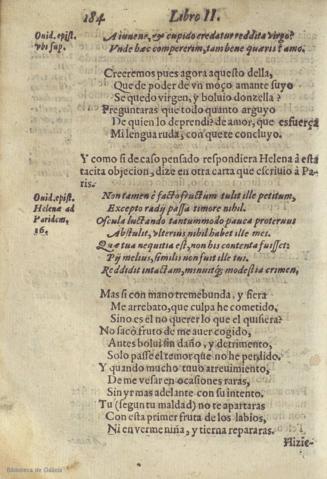 184 Libro II.
Ouid. epist. vbi sup.
A iuuene, & cupido credatur reddita virgo?
Vnde hæc compererim, tam bene quæris? amo.
Creeremos pues agora aquesto della,
Que de poder de vn moço amante suyo
Se quedo virgen, y boluio donzella?
Preguntaras que todo quanto arguyo
De quien lo deprendi? de amor, que esfuerça
Mi lengua ruda, con que te concluyo.
Y como si de caso pensado respondiera Helena à esta
tacita objecion, dize en otra carta que escriuio à Pa-
ris.
Ouid. epist. Helena ad Paridem, 16.
Non tamen è facto fructum tulit ille petitum,
Excepto redij passa timore nihil.
Oscula luctando tantummodo pauca proteruus
Abstulit, vlterius nihil habet ille mei.
Quæ tua nequitia est, non his contenta fuisset:
Pij melius, similis non fuit ille tui.
Reddidit intactam, minuitq; modestia crimen,
Mas si con mano tremebunda, y fiera
Me arrebato, que culpa he cometido,
Sino es el no querer lo que el quisiera?
No sacò fruto de me auer cogido,
Antes bolui sin daño, y detrimento,
Solo passè el temor que no he perdido.
Y quando mucho tuuo atreuimiento,
De me vesar en ocasiones raras,
Sin yr mas adelante con su intento.
Tu (segun tu maldad) no te apartaras
Con esta primer fruta de los labios,
Ni en verme niña, y tierna repararas.
Hizie-
Biblioteca de Galicia